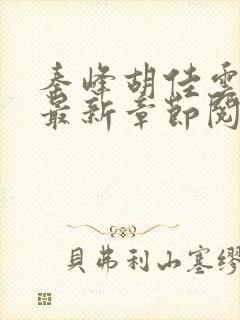 秦峰胡佳雲
最新章節閱
貝弗利山塞繆